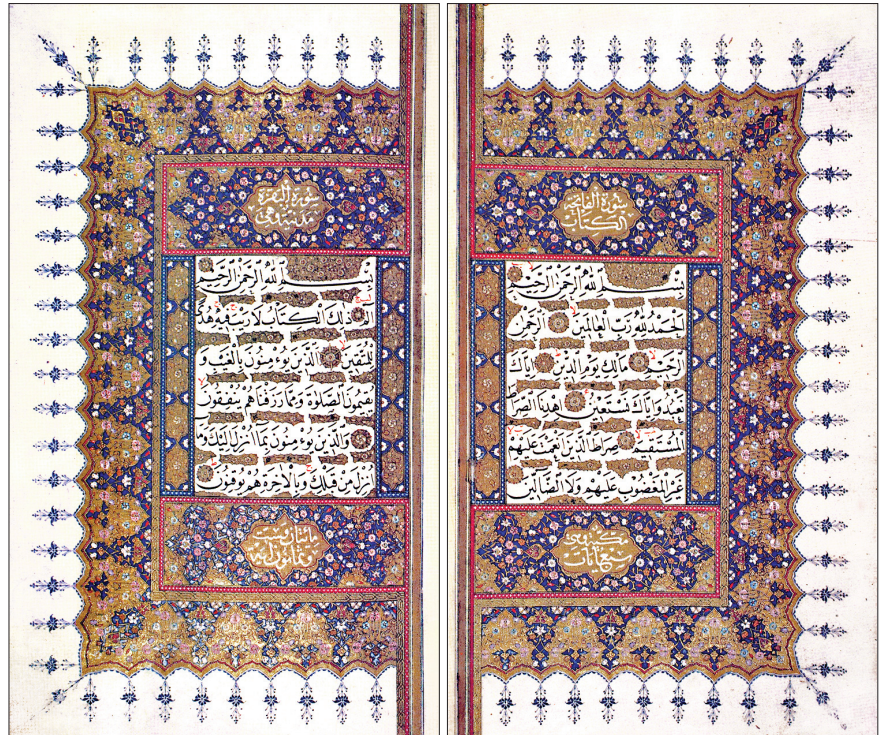 سورة الفاتحة
الكتاب
بسم الله الرحمن الرحيم
الحمد لله رب العالمين الرحمن
الرحيم مالك يوم الدين اياك
نعبد واياك نستعين اهدنا الصراط
المستقيم صراط الذين انعمت عليهم
غير المغضوب عليهم ولا الضالين
مكية وهى
سبع ايات
سورة البقرة
مدنية وهى
بسم الله الرحمن الرحيم
الم ذلك الكتاب لا ريب فيه هدى
للمتقين الذين يؤمنون بالغيب و
يقيمون الصلوة ومما رزقناهم ينفقون
والذين يؤمنون بما انزل اليك وما
انزل من قبلك وبالاخرة هم يوقنون
مائتان وست
وثمانون اية